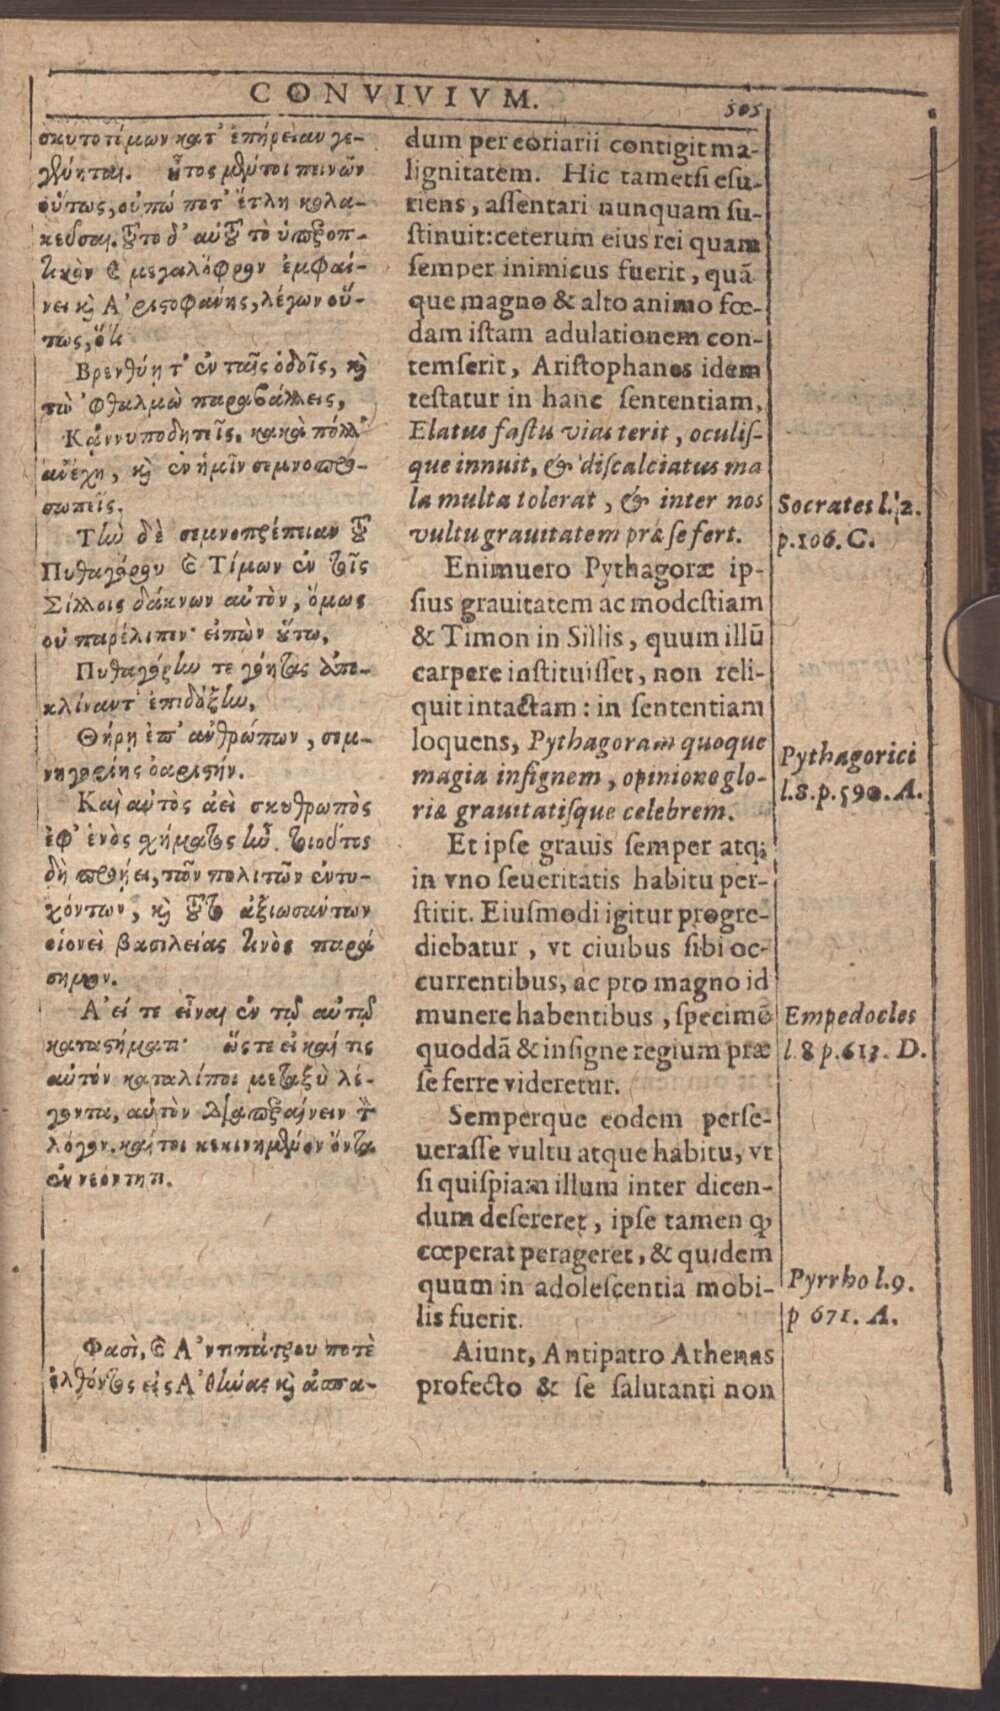 CONVIVIVM.
505
σκυτοτόμων κατ' ἐπήρειαν γε-
γένηται. οὗτος μέντοι πεινῶν
οὕτως, οὐπώ ποτ' ἔτλη κολα-
κεῦσαι. τοῦτο δ' αὐτοῦ τὸ ὑπεροπ-
τικὸν καὶ μεγαλόφρον ἐμφαί-
νει καὶ Ἀριστοφάνης, λέγων οὕ-
τως, ὅτι
Βρενθύη τ' ἐν ταῖς ὁδοῖς, καὶ
τὼ ὀφθαλμὼ παραβάλλεις,
Κἀννυποδητεῖς, κακὰ πολλ'
ἀνέχη, καὶ ἐν ἡμῖν σεμνοπρο-
σωπεῖς.
Τὴν δὲ σεμνοπρέπειαν τοῦ
Πυθαγόρου καὶ Τίμων ἐν τοῖς
Σίλλοις δάκνων αὐτὸν, ὅμως
οὐ παρέλιπεν· εἰπὼν οὕτω,
Πυθαγόρην τε γόητας ἀπο-
κλίναντ' ἐπιδόξην,
Θήρῃ ἐπ' ἀνθρώπων, σεμ-
νηγορίης ὀαριστήν.
Καὶ αὐτὸς ἀεὶ σκυθρωπὸς
ἐφ' ἑνὸς χήματος ἦν. τοιοῦτος
δὴ προῄει, τῶν πολιτῶν ἐντυ-
χόντων, καὶ τοῦτο ἀξιωσάντων
οἱονεὶ βασιλείας τινὸς παρά
σημον.
Ἀεί τε εἶναι ἐν τῷ αὐτῷ
καταστήματι· ὥστε εἰ καί τις
αὐτὸν καταλίποι μεταξὺ λέ-
γοντα, αὑτὸν διαπεραίνειν τὸν
λόγον. καίτοι κεκινημένον ὄντα
ἐν νεότητι.
Φασὶ, καὶ Ἀντιπάτρου ποτὲ
ἐλθόντος εἰς Ἀθήνας καὶ ἀσπα-
dum per coriarii contigit ma-
lignitatem. Hic tametsi esu-
riens, assentari nunquam su-
stinuit: ceterum eius rei quam
semper inimicus fuerit, quā
que magno & alto animo fœ-
dam istam adulationem con-
temserit, Aristophanes idem
testatur in hanc sententiam,
Elatus fastu vias terit, oculis-
que innuit, & discalciatus ma
la multa tolerat, & inter nos
vultu grauitatem præ se fert.
Enimuero Pythagoræ ip-
sius grauitatem ac modestiam
& Timon in Sillis, quum illū
carpere instituisset, non reli-
quit intactam: in sententiam
loquens, Pythagoram quoque
magia insignem, opinione glo-
riæ grauitatisque celebrem.
Et ipse grauis semper atq;
in vno seueritatis habitu per-
stitit. Eiusmodi igitur progre-
diebatur, vt ciuibus sibi oc-
currentibus, ac pro magno id
munere habentibus, specimē
quoddā & insigne regium præ
se ferre videretur.
Semperque eodem perse-
uerasse vultu atque habitu, vt
si quispiam illum inter dicen-
dum desereret, ipse tamen ꝙ
cœperat perageret, & quidem
quum in adolescentia mobi-
lis fuerit.
Aiunt, Antipatro Athenas
profecto & se salutanti non
Socrates l. 2.
p.106. C.
Pythagorici
l.8. p.590. A.
Empedocles
l. 8 p.613. D.
Pyrrho l.9.
p 671. A.